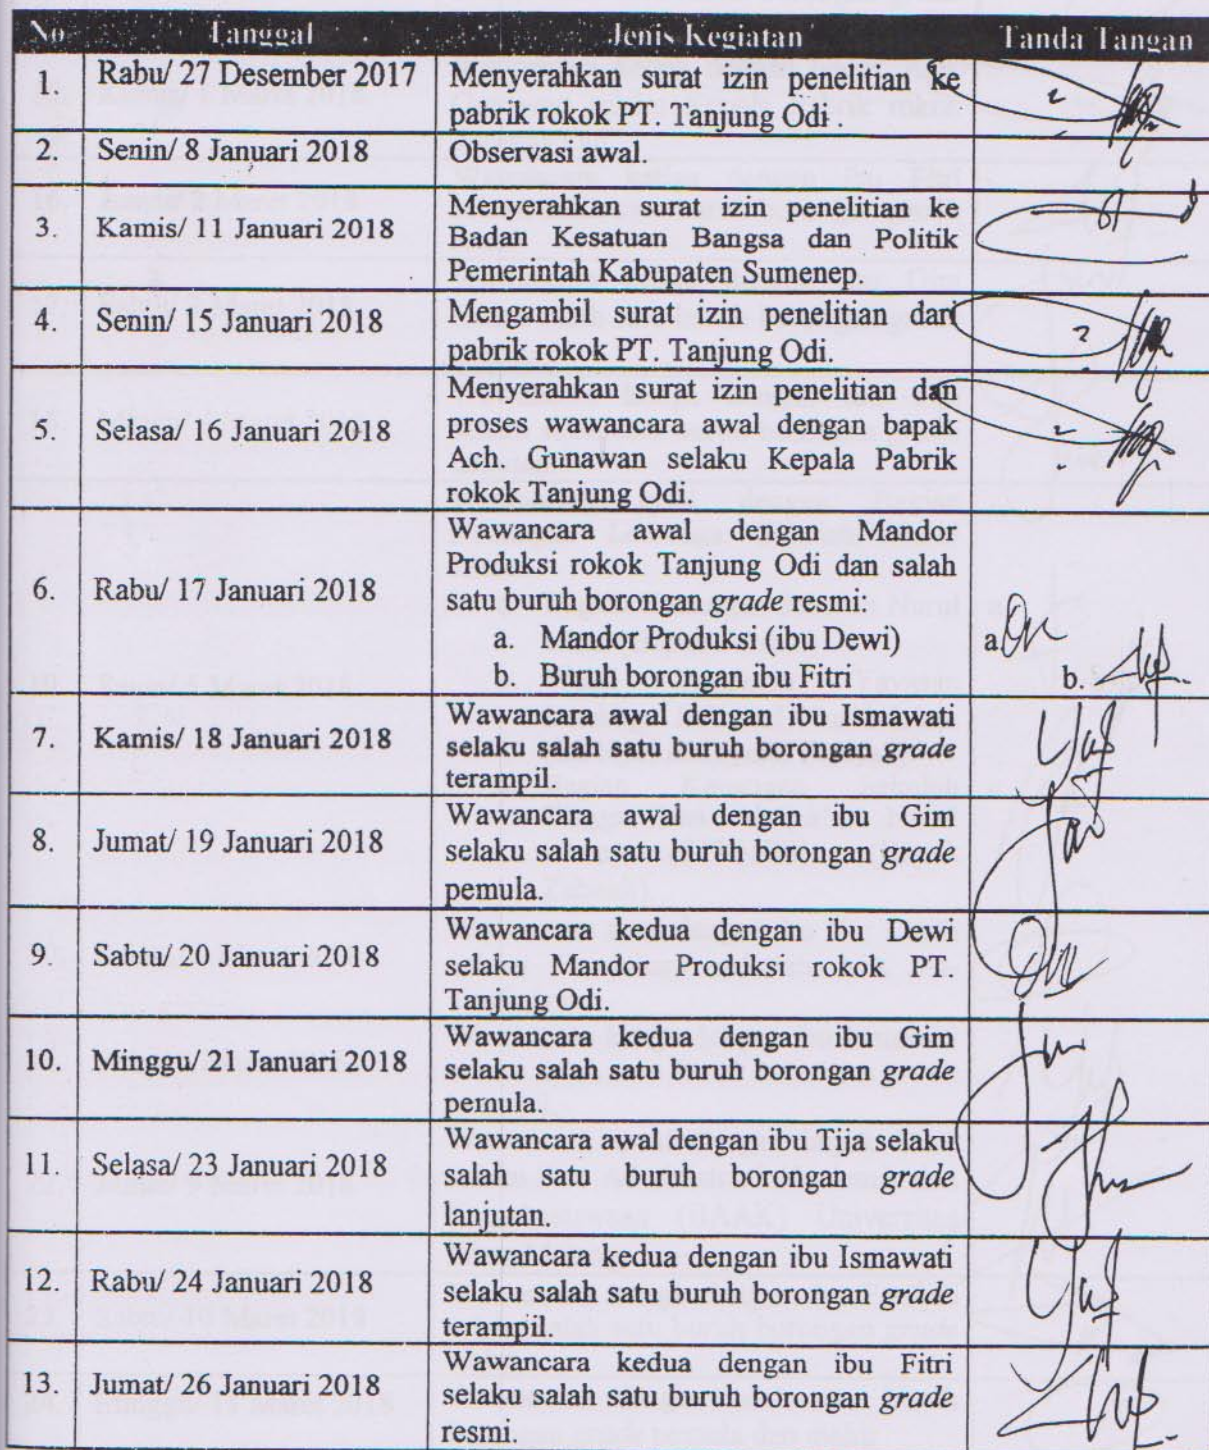 No Tanggal Jenis Kegiatan Tanda Tangan
1. Rabu/ 27 Desember 2017 Menyerahkan surat izin penelitian ke
pabrik rokok PT. Tanjung Odi .
2. Senin/ 8 Januari 2018 Observasi awal.
3. Kamis/ 11 Januari 2018 Menyerahkan surat izin penelitian ke
Badan Kesatuan Bangsa dan Politik
Pemerintah Kabupaten Sumenep.
4. Senin/ 15 Januari 2018 Mengambil surat izin penelitian dari
pabrik rokok PT. Tanjung Odi.
5. Selasa/ 16 Januari 2018 Menyerahkan surat izin penelitian dan
proses wawancara awal dengan bapak
Ach. Gunawan selaku Kepala Pabrik
rokok Tanjung Odi.
6. Rabu/ 17 Januari 2018 Wawancara awal dengan Mandor
Produksi rokok Tanjung Odi dan salah
satu buruh borongan grade resmi:
a. Mandor Produksi (ibu Dewi) a.
b. Buruh borongan ibu Fitri b.
7. Kamis/ 18 Januari 2018 Wawancara awal dengan ibu Ismawati
selaku salah satu buruh borongan grade
terampil.
8. Jumat/ 19 Januari 2018 Wawancara awal dengan ibu Gim
selaku salah satu buruh borongan grade
pemula.
9. Sabtu/ 20 Januari 2018 Wawancara kedua dengan ibu Dewi
selaku Mandor Produksi rokok PT.
Tanjung Odi.
10. Minggu/ 21 Januari 2018 Wawancara kedua dengan ibu Gim
selaku salah satu buruh borongan grade
pemula.
11. Selasa/ 23 Januari 2018 Wawancara awal dengan ibu Tija selaku
salah satu buruh borongan grade
lanjutan.
12. Rabu/ 24 Januari 2018 Wawancara kedua dengan ibu Ismawati
selaku salah satu buruh borongan grade
terampil.
13. Jumat/ 26 Januari 2018 Wawancara kedua dengan ibu Fitri
selaku salah satu buruh borongan grade
resmi.